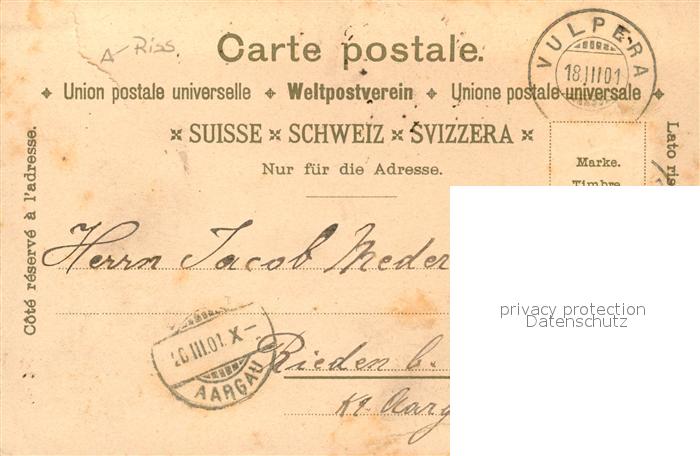 A- Riss.
Carte postale.
VULPERA
18 III 01
Union postale universelle ⁌ Weltpostverein ⁌ Unione postale universale
SUISSE × SCHWEIZ × SVIZZERA
Nur für die Adresse.
Côté réservé à l'adresse.
Lato ris
Marke.
Timbre
Herrn Jacob Meder
20 III 01 X-
AARGAU
Rieden b.
Kt. Aarg
privacy protection
Datenschutz